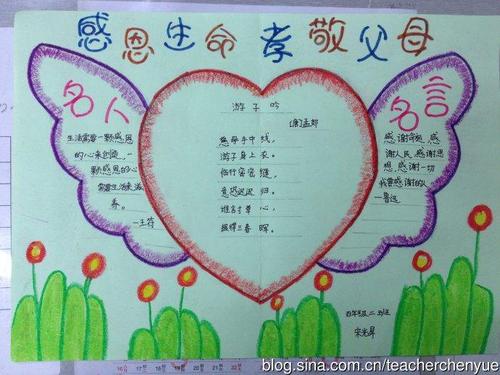 感恩生命 孝敬父母
名人
生活需要一颗感恩
的心来创造，一
颗感恩的心
需要生活来滋
养。
—王符
游子吟
(唐)孟郊
慈母手中线，
游子身上衣。
临行密密缝，
意恐迟迟归。
谁言寸草心，
报得三春晖。
名言
感谢命运，感
谢人民，感谢思
想，感谢一切
我要感谢的人
—鲁迅
四年级二班
blog.sina.com.cn/teacherchenyue